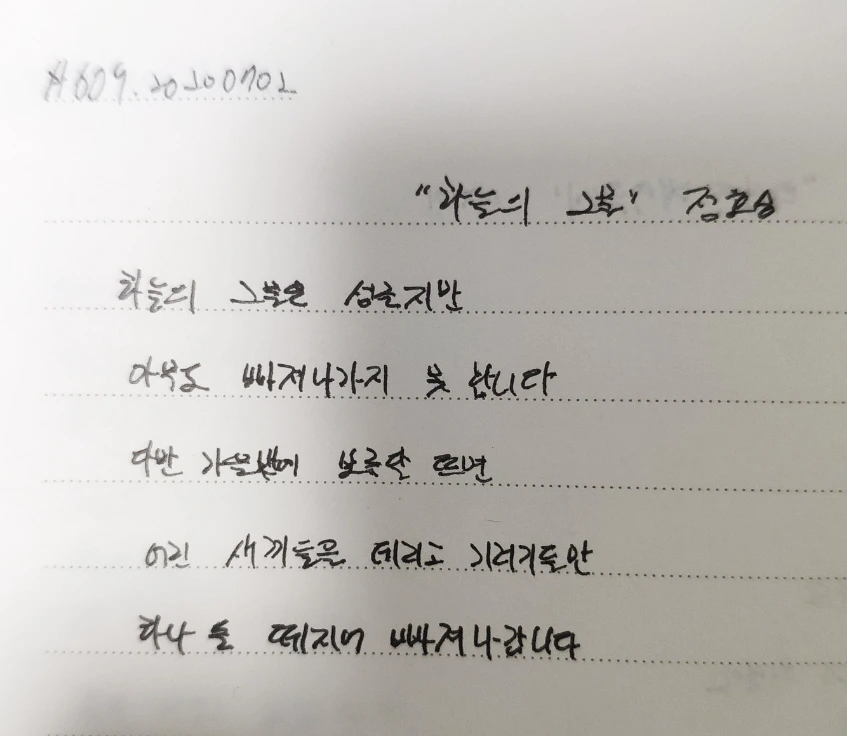 A609.20200702
"하늘의 그물" 정호승
하늘의 그물은 성글지만
아무도 빠져나가지 못 합니다
다만 가을밤에 보름달 뜨면
어린 새끼들을 데리고 기러기들만
하나 둘 떼지어 빠져나갑니다